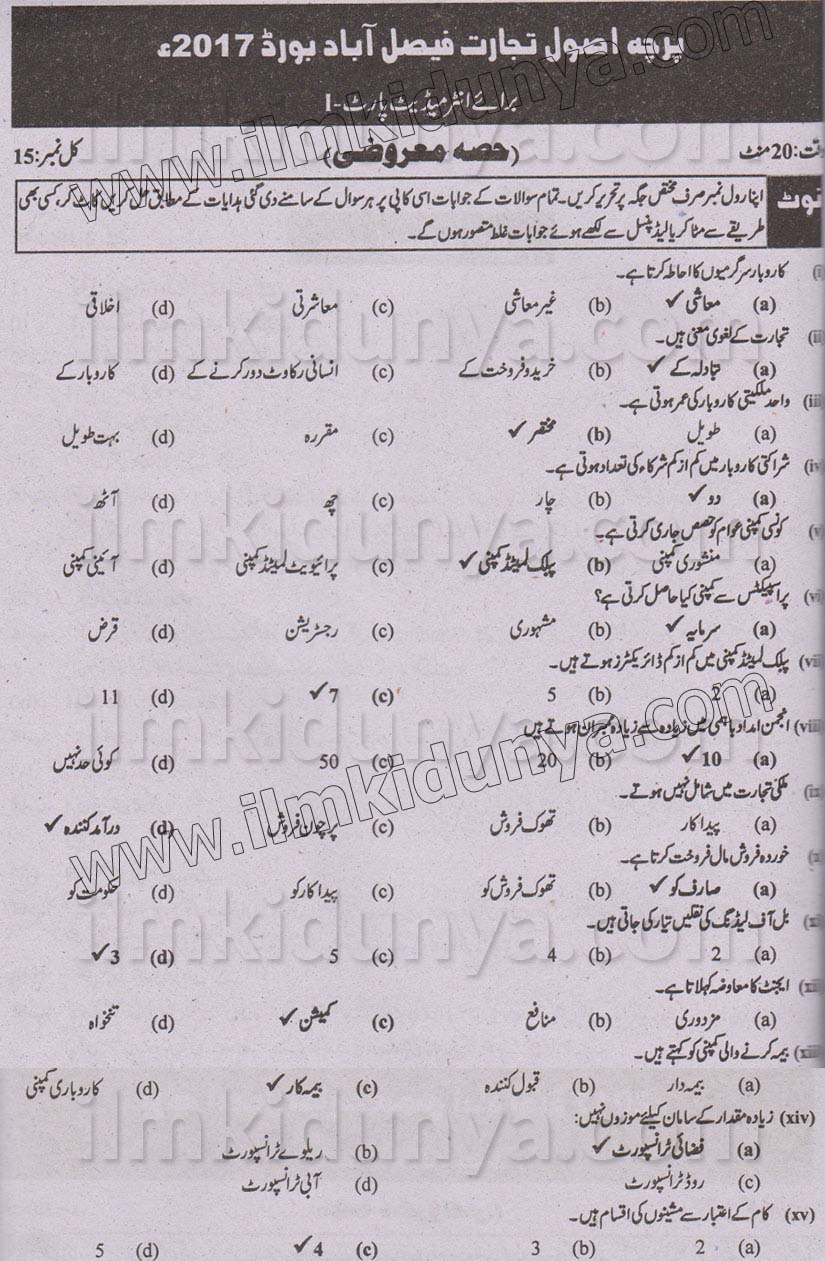 پرچہ اصول تجارت فیصل آباد بورڈ 2017ء
برائے انٹرمیڈیٹ پارٹ-I
وقت:20 منٹ (حصہ معروضی) کل نمبر:15
نوٹ اپنا رول نمبر صرف مختص جگہ پر تحریر کریں۔ تمام سوالات کے جوابات اسی کاپی پر ہر سوال کے سامنے دی گئی ہدایات کے مطابق حل کریں کاٹ کر، کسی بھی
طریقے سے مٹا کر یا لیڈ پنسل سے لکھے ہوئے جوابات غلط متصور ہوں گے۔
(i) کاروبار سرگرمیوں کا احاطہ کرتا ہے۔
(a) معاشی ✓ (b) غیر معاشی (c) معاشرتی (d) اخلاقی
(ii) تجارت کے لغوی معنی ہیں۔
(a) تبادلہ کے ✓ (b) خرید و فروخت کے (c) انسانی رکاوٹ دور کرنے کے (d) کاروبار کے
(iii) واحد ملکیتی کاروبار کی عمر ہوتی ہے۔
(a) طویل (b) مختصر ✓ (c) مقررہ (d) بہت طویل
(iv) شراکتی کاروبار میں کم از کم شرکاء کی تعداد ہوتی ہے۔
(a) دو ✓ (b) چار (c) چھ (d) آٹھ
(v) کونسی کمپنی عوام کو حصص جاری کرتی ہے۔
(a) منشوری کمپنی (b) پبلک لمیٹڈ کمپنی ✓ (c) پرائیویٹ لمیٹڈ کمپنی (d) آئینی کمپنی
(vi) پراسپیکٹس سے کمپنی کیا حاصل کرتی ہے؟
(a) سرمایہ ✓ (b) مشہوری (c) رجسٹریشن (d) قرض
(vii) پبلک لمیٹڈ کمپنی میں کم از کم ڈائریکٹرز ہوتے ہیں۔
(a) 2 (b) 5 (c) 7 ✓ (d) 11
(viii) انجمن امداد باہمی میں زیادہ سے زیادہ ممبران ہوتے ہیں
(a) 10 ✓ (b) 20 (c) 50 (d) کوئی حد نہیں
(ix) ملکی تجارت میں شامل نہیں ہوتے۔
(a) پیدا کار (b) تھوک فروش (c) پرچون فروش (d) درآمد کنندہ ✓
(x) خوردہ فروش مال فروخت کرتا ہے۔
(a) صارف کو ✓ (b) تھوک فروش کو (c) پیدا کار کو (d) حکومت کو
(xi) بل آف لیڈنگ کی نقلیں تیار کی جاتی ہیں۔
(a) 2 (b) 4 (c) 5 (d) 3 ✓
(xii) ایجنٹ کا معاوضہ کہلاتا ہے۔
(a) مزدوری (b) منافع (c) کمیشن ✓ (d) تنخواہ
(xiii) بیمہ کرنے والی کمپنی کو کہتے ہیں۔
(a) بیمہ دار (b) قبول کنندہ (c) بیمہ کار ✓ (d) کاروباری کمپنی
(xiv) زیادہ مقدار کے سامان کیلئے موزوں نہیں:
(a) فضائی ٹرانسپورٹ ✓ (b) ریلوے ٹرانسپورٹ
(c) روڈ ٹرانسپورٹ (d) آبی ٹرانسپورٹ
(xv) کام کے اعتبار سے مشینوں کی اقسام ہیں۔
(a) 2 (b) 3 (c) 4 ✓ (d) 5
www.ilmkidunya.com
www.ilmkidunya.com
ilmkidunya.com
ilmkidunya.com
ilmkidunya.com
ilmkidunya.com
ilmkidunya.com
ilmkidunya.com